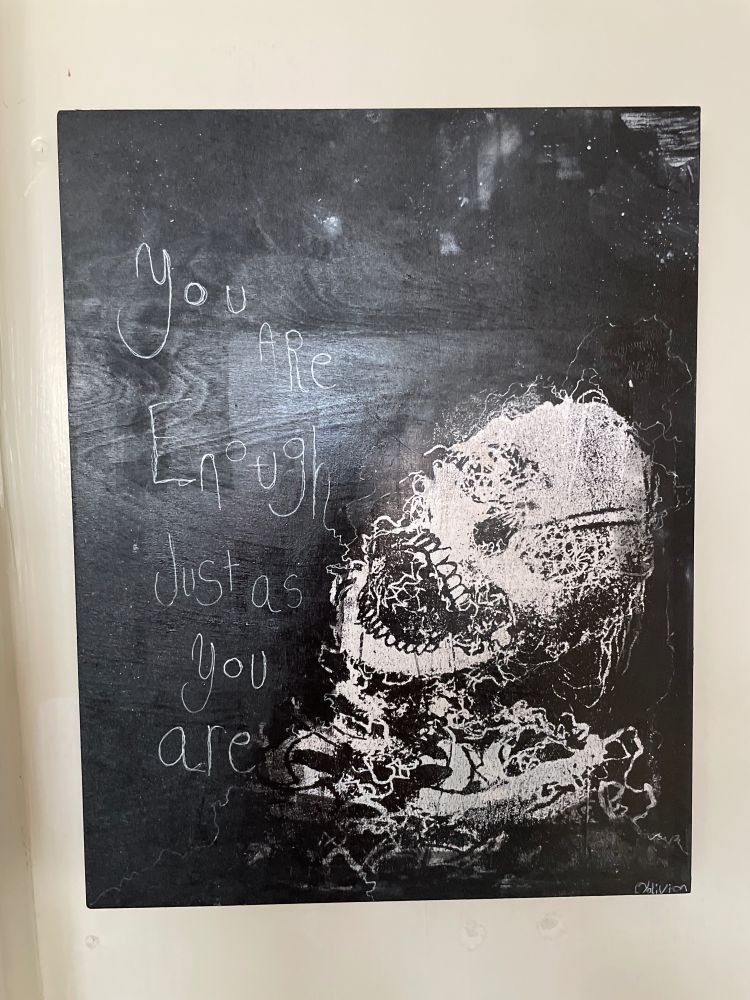 You
ARe
Enough
Just as
you
are
Oblivion